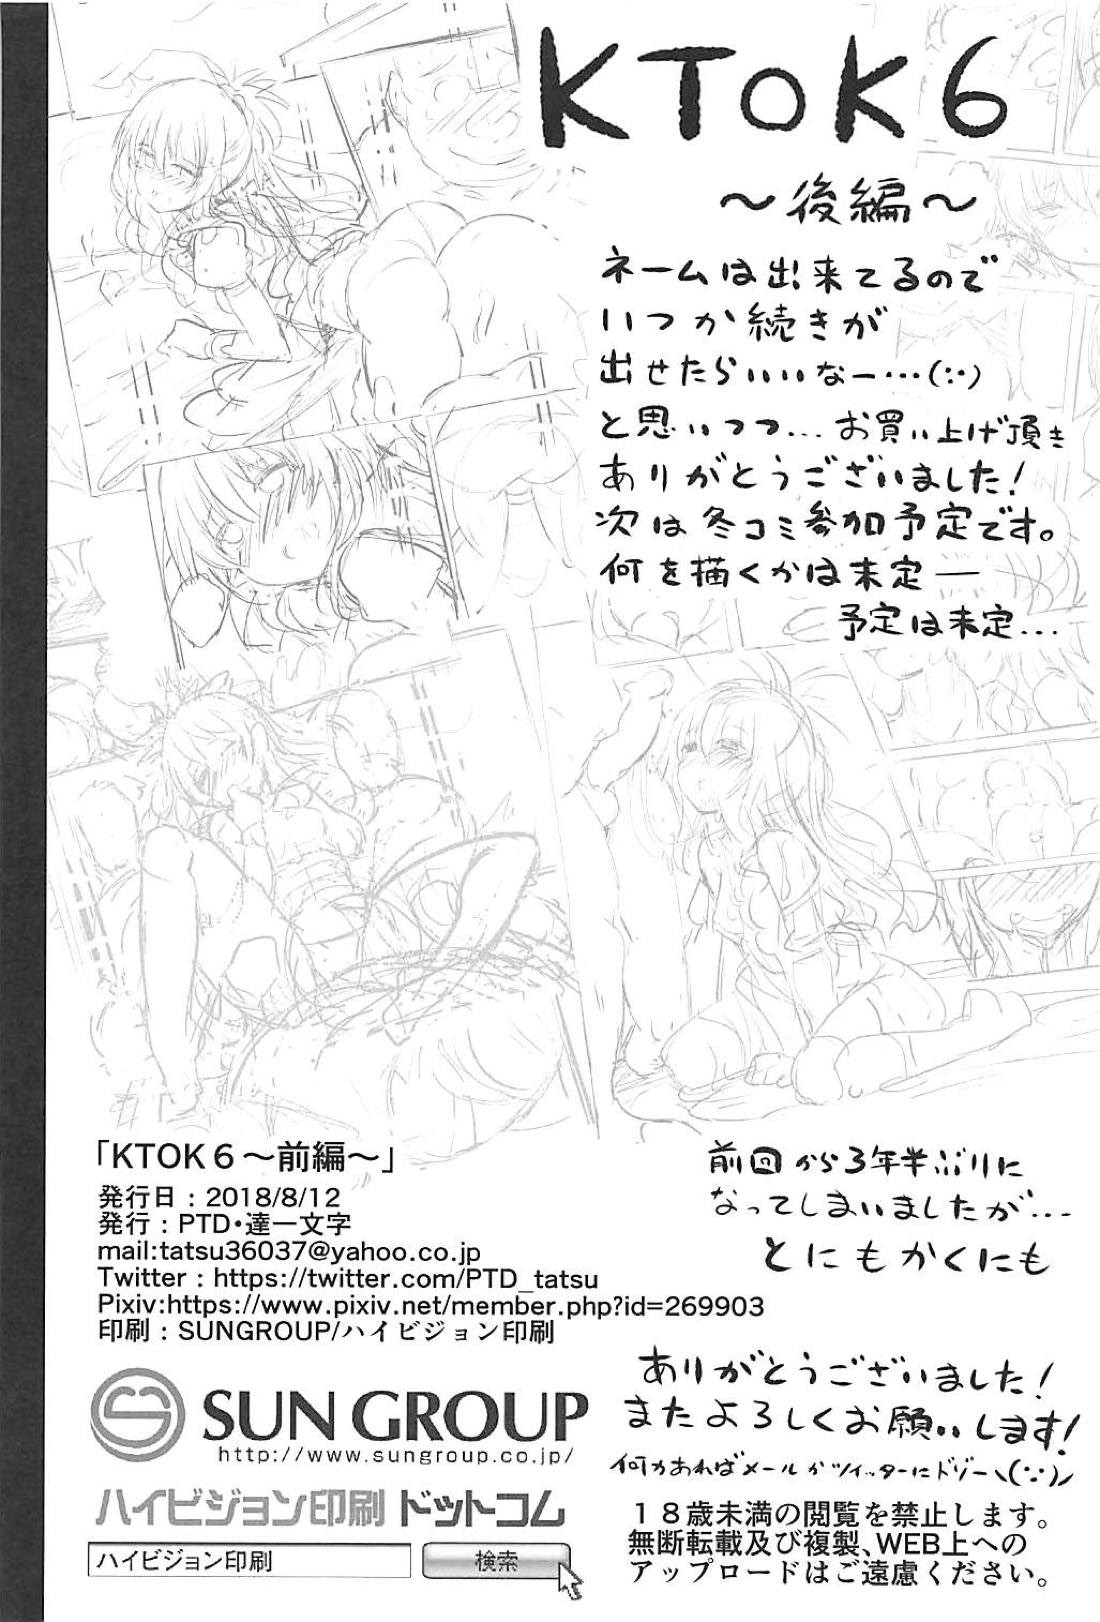 KTOK6
～後編～
ネームは出来てるので
いつか続きが
出せたらいいなー…(:･)
と思いつつ…お買い上げ頂き
ありがとうございました!
次は冬コミ参加予定です。
何を描くかは未定―
予定は未定…
「KTOK６～前編～」
発行日：2018/8/12
発行：PTD・達一文字
mail:tatsu36037@yahoo.co.jp
Twitter：https://twitter.com/PTD_tatsu
Pixiv:https://www.pixiv.net/member.php?id=269903
印刷：SUNGROUP/ハイビジョン印刷
前回から3年半ぶりに
なってしまいましたが…
とにもかくにも
SUN GROUP
http://www.sungroup.co.jp/
ハイビジョン印刷 ドットコム
ハイビジョン印刷 検索
ありがとうございました!
またよろしくお願いします!
何かあればメールかツイッターにドゾー＼(:･)ノ
１８歳未満の閲覧を禁止します。
無断転載及び複製、WEB上への
アップロードはご遠慮ください。